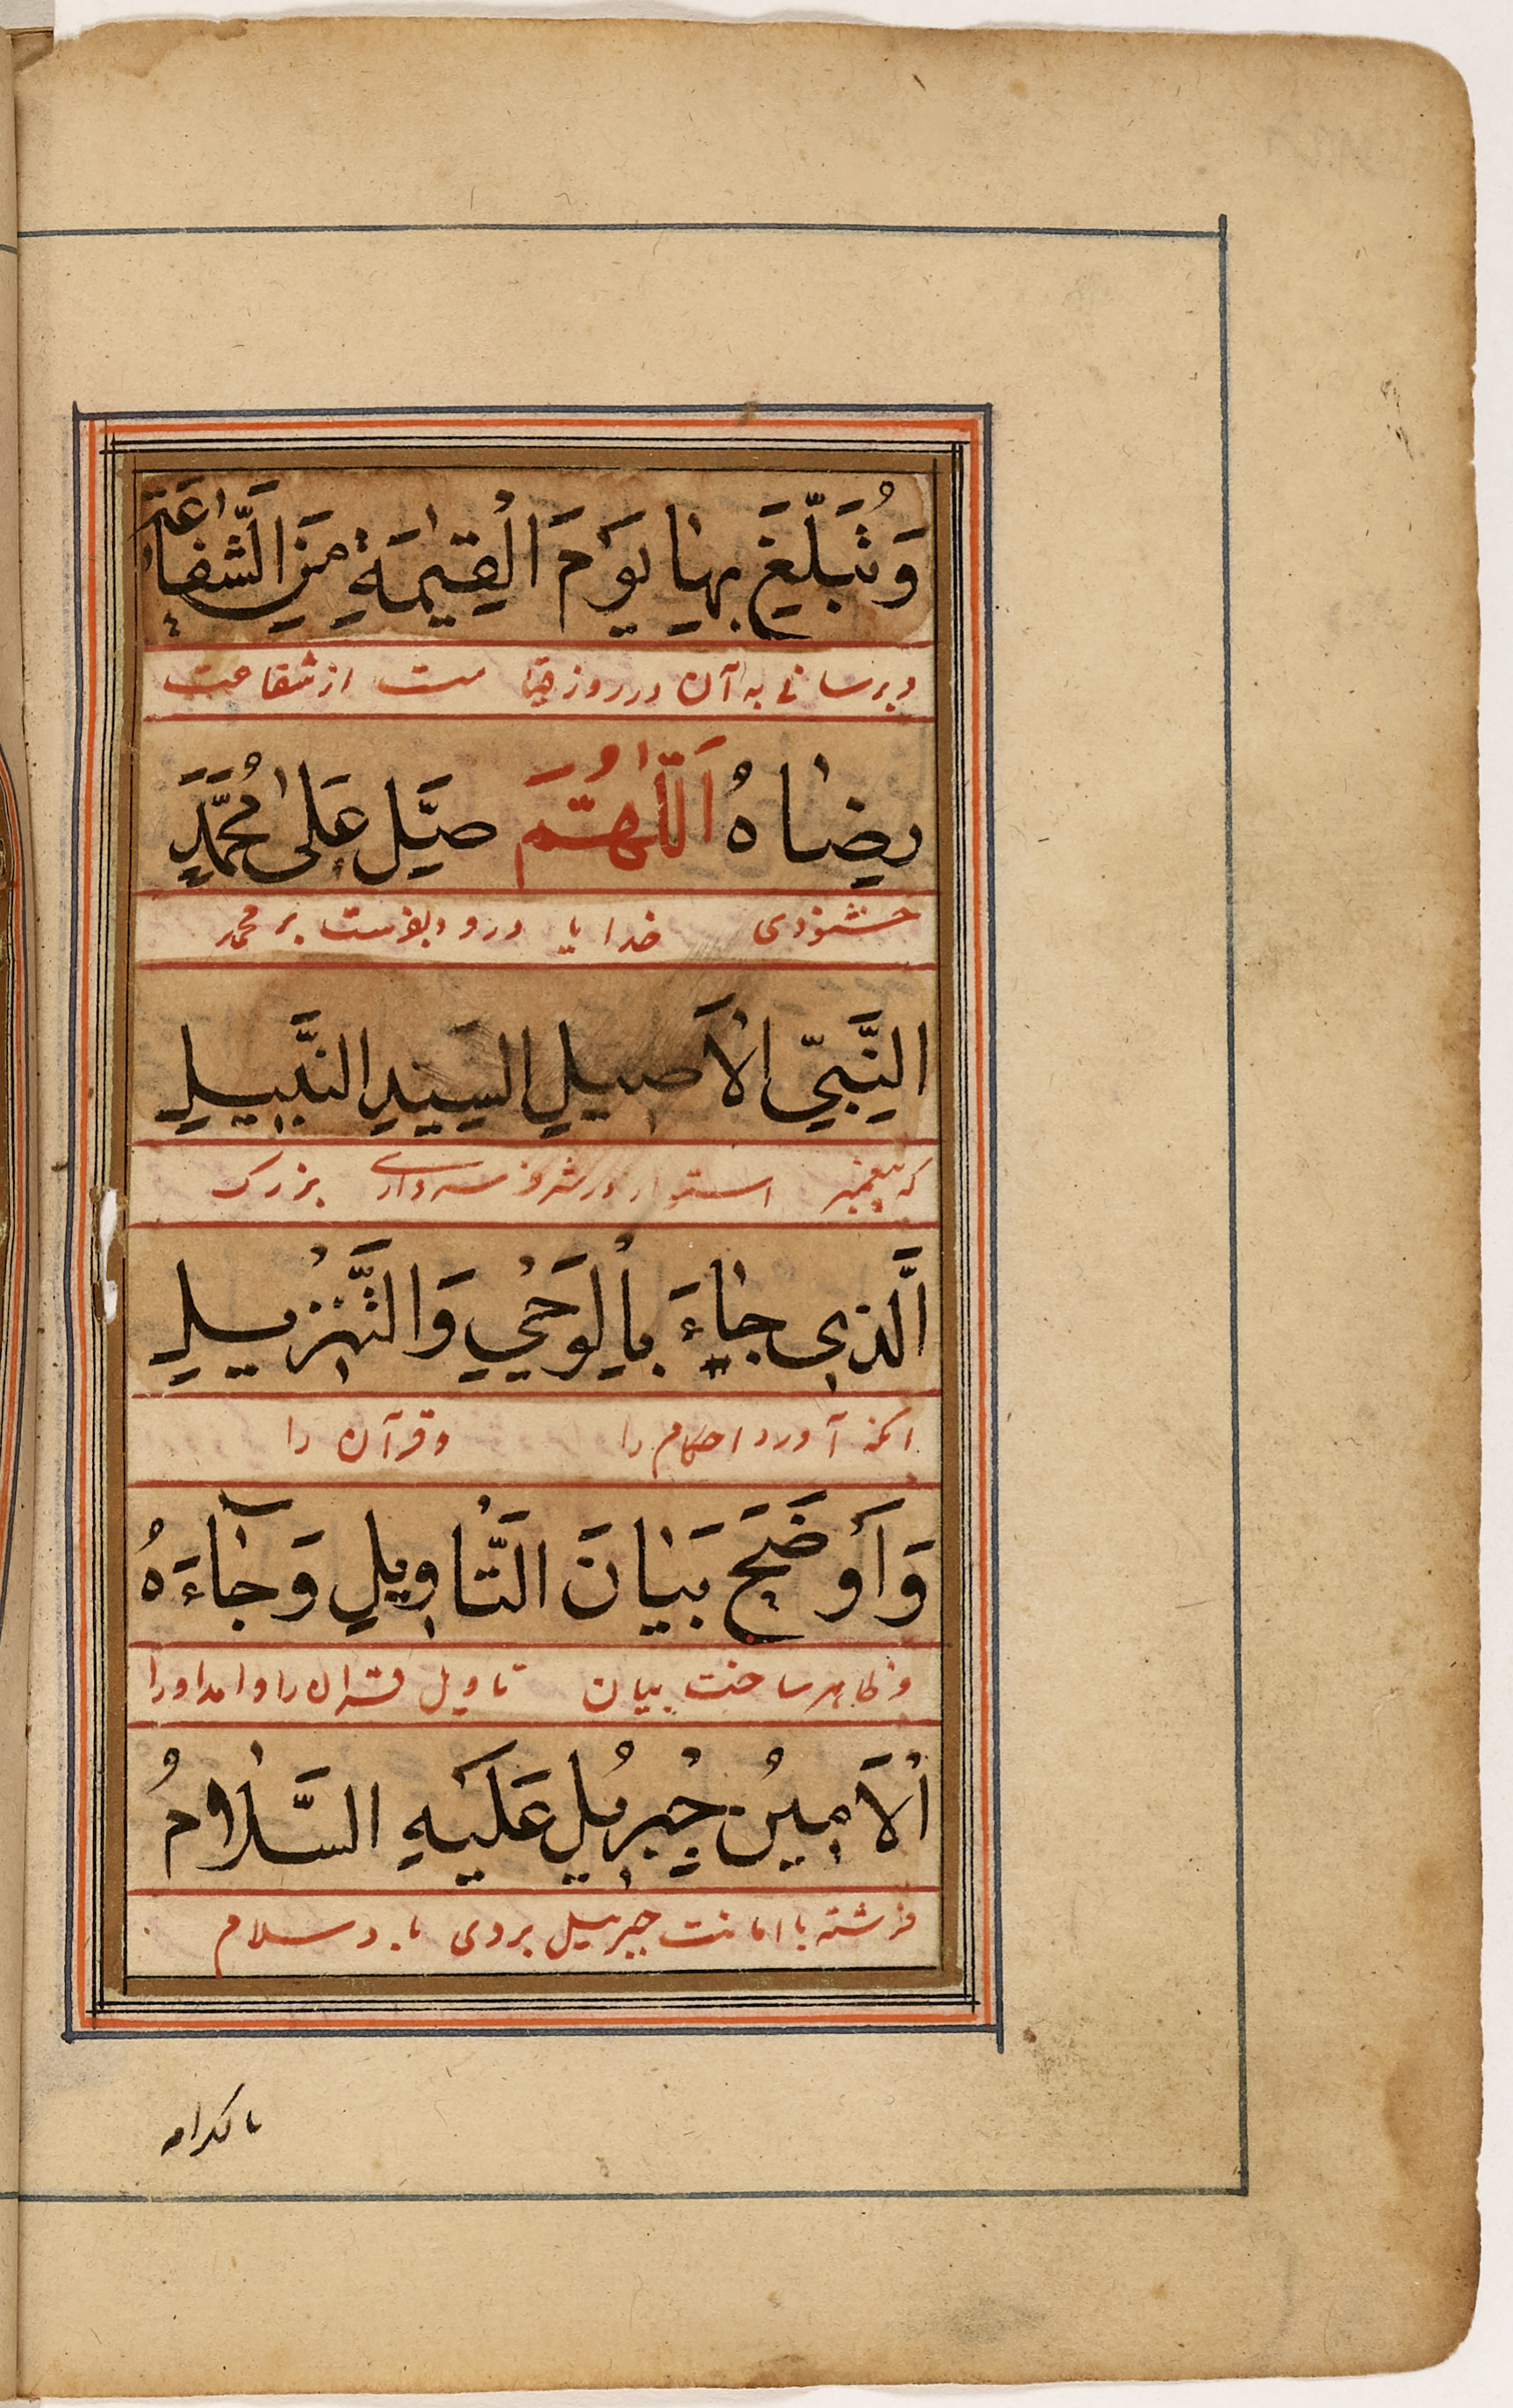 وَتُبَلِّغَ بِهَا يَوْمَ الْقِيٰمَةِ مِنَ الشَّفَاعَةِ
و برسانی به آن در روز قیامت از شفاعت
رِضَاهُ اَللّٰهُمَّ صَلِّ عَلٰى مُحَمَّدٍ
خشنودی خدایا درود بفرست بر محمد
النَّبِيِّ الْاَصِيلِ السَّيِّدِ النَّبِيلِ
که پیغمبر استوار در شرف سرداری بزرک
الَّذِي جَاءَ بِالْوَحْيِ وَالتَّنْزِيلِ
انکه آورد احکام را وقرآن را
وَاَوْضَحَ بَيَانَ التَّاْوِيلِ وَجَآءَهُ
وظاهر ساخت بیان تاویل قران را وامد اورا
اْلاَمِينُ جِبْرِيلُ عَلَيْهِ السَّلَامُ
فرشته با امانت جبرییل بروی باد سلام
بالکرامه